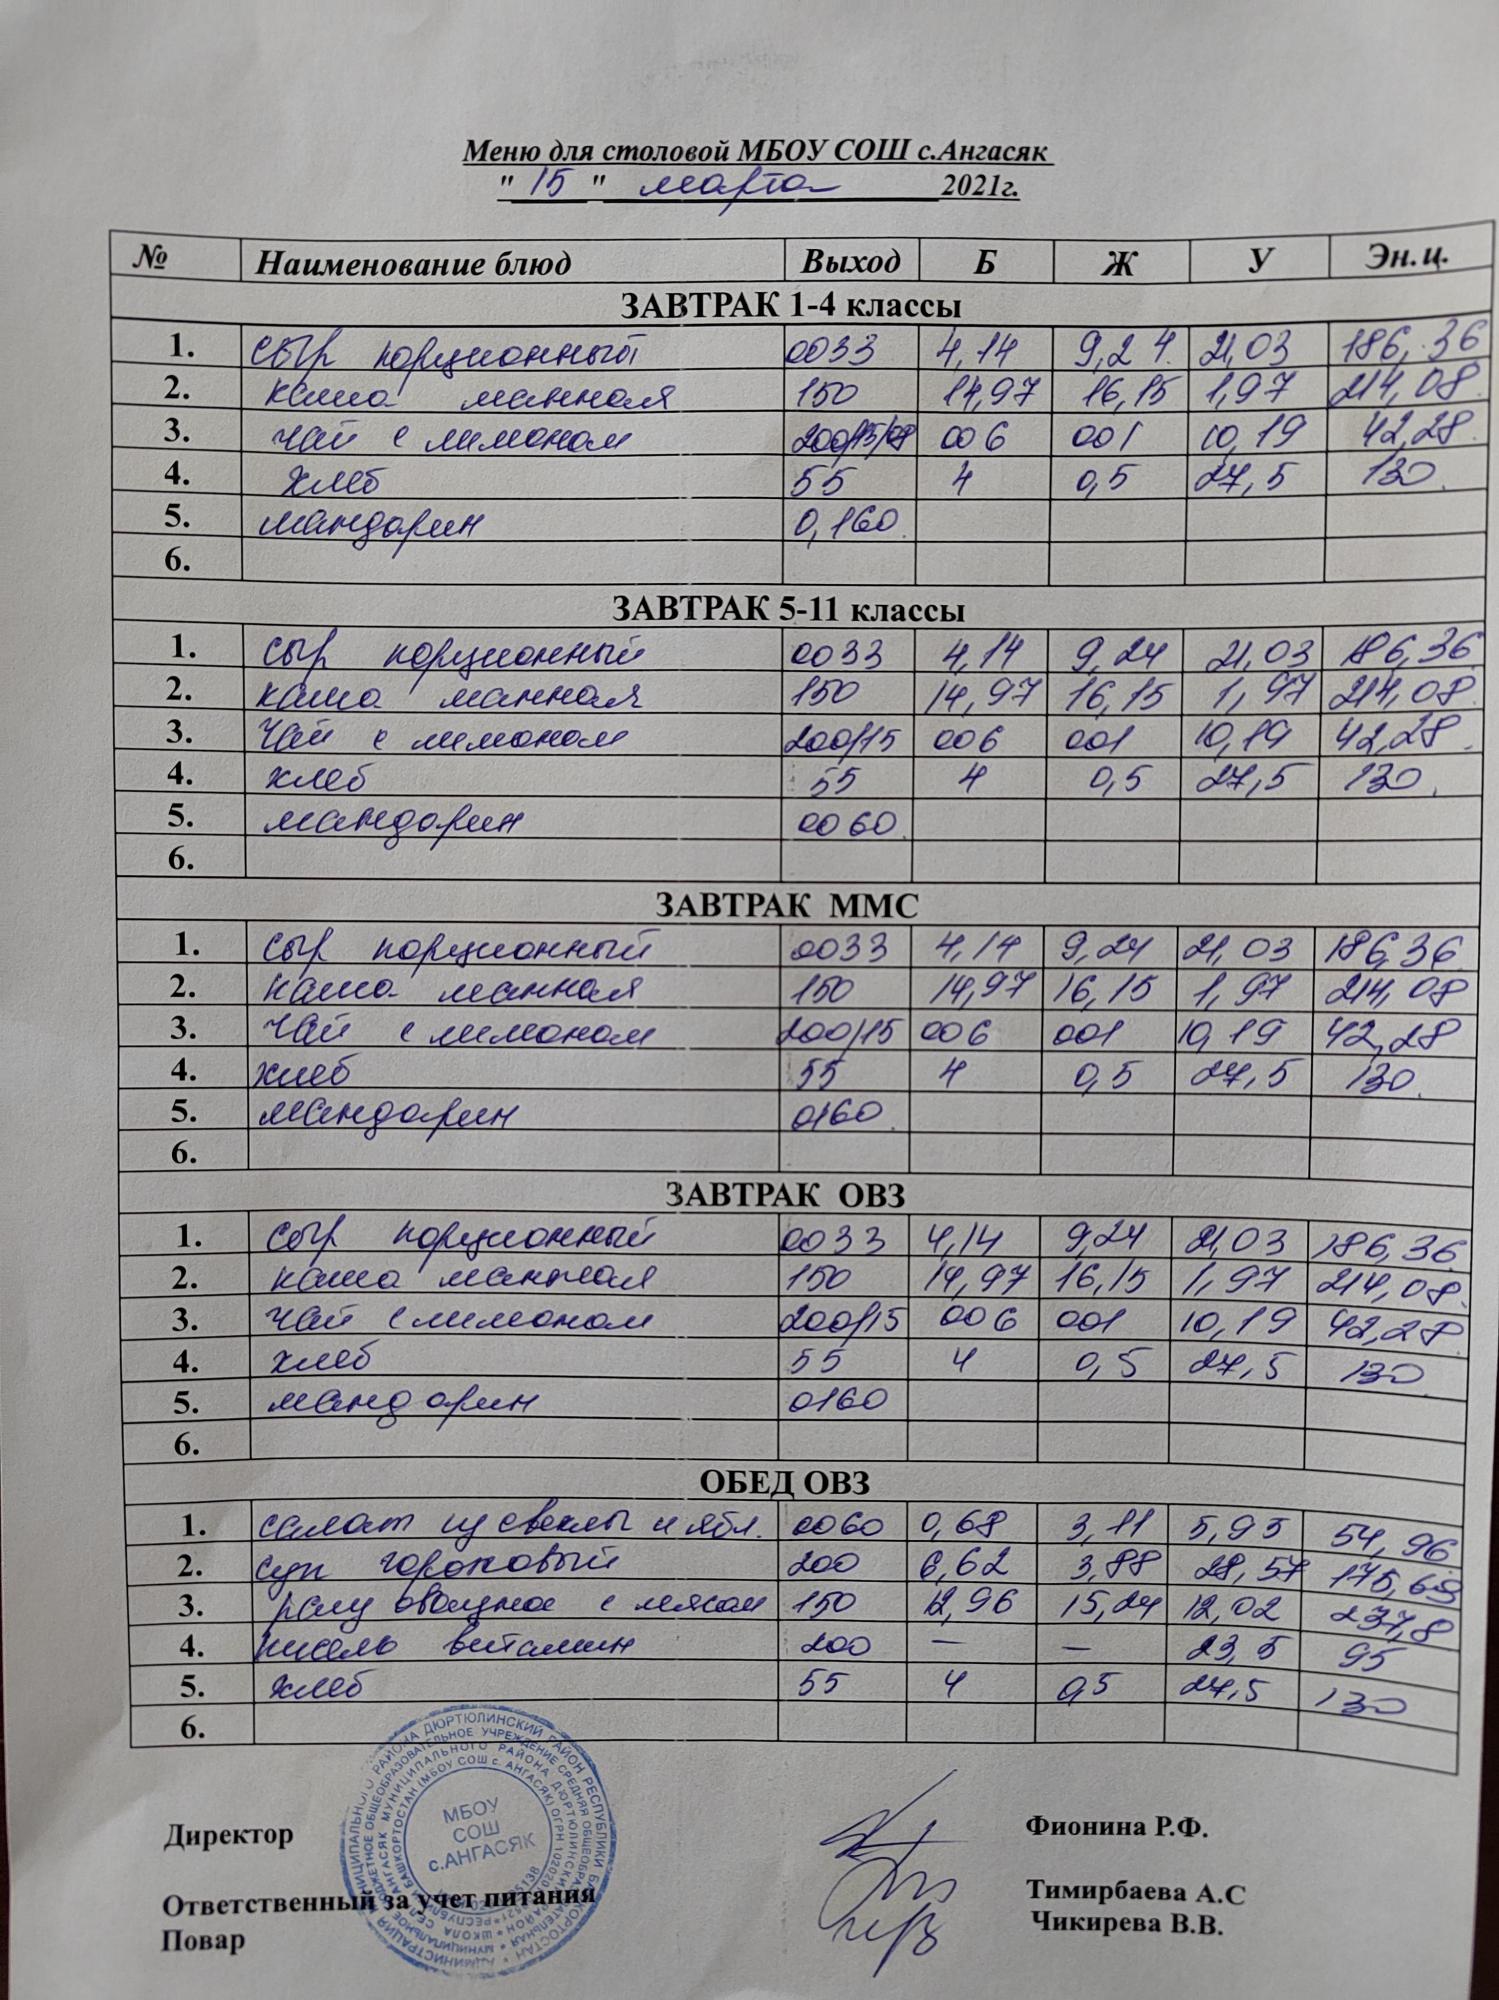 Меню для столовой МБОУ СОШ с.Ангасяк
" 15 " марта 2021г.
№ Наименование блюд Выход Б Ж У Эн. ц.
ЗАВТРАК 1-4 классы
1. сыр порционный 0033 4,14 9,24 21,03 186,36
2. каша манная 150 14,97 16,15 1,97 214,08
3. чай с лимоном 200/15/ 006 001 10,19 42,28
4. хлеб 55 4 0,5 27,5 130
5. мандарин 0,160
6.
ЗАВТРАК 5-11 классы
1. сыр порционный 0033 4,14 9,24 21,03 186,36
2. каша манная 150 14,97 16,15 1,97 214,08
3. Чай с лимоном 200/15 006 001 10,19 42,28
4. хлеб 55 4 0,5 27,5 130
5. мандарин 0060
6.
ЗАВТРАК ММС
1. сыр порционный 0033 4,14 9,24 21,03 186,36
2. каша манная 150 14,97 16,15 1,97 214,08
3. Чай с лимоном 200/15 006 001 10,19 42,28
4. хлеб 55 4 0,5 27,5 130
5. мандарин 0160
6.
ЗАВТРАК ОВЗ
1. сыр порционный 0033 4,14 9,24 21,03 186,36
2. каша манная 150 14,97 16,15 1,97 214,08
3. Чай с лимоном 200/15 006 001 10,19 42,28
4. хлеб 55 4 0,5 27,5 130
5. мандарин 0160
6.
ОБЕД ОВЗ
1. салат из свеклы и ябл. 0060 0,68 3,11 5,93 54,96
2. суп гороховый 200 6,62 3,88 28,57 175,69
3. рагу овощное с мясом 150 12,96 15,24 12,02 237,8
4. кисель витамин 200 — — 23,5 95
5. хлеб 55 4 0,5 27,5 130
6.
МБОУ
СОШ
с.АНГАСЯК
Директор Фионина Р.Ф.
Ответственный за учет питания Тимирбаева А.С
Повар Чикирева В.В.